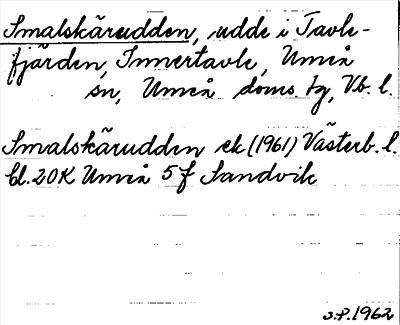 Smalskärudden, udde i Tavle-
fjärden, Innertavle, Umeå
sn, Umeå doms. tg, Vb. l.
Smalskärudden ek (1961) Västerb. l.
bl. 20K Umeå 5 f Sandvik
S.P. 1962